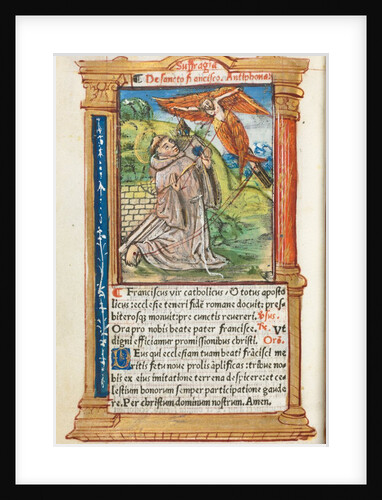 Suffragia
De sancto frācisco. Antiphona.
Franciscus vir catholicus / O totus aposto
licus: ecclesie teneri fidē romane docuit: pres
biterosqȝ monuit: pre cunctis reuereri. Vsus.
Ora pro nobis beate pater francisce. ℟. Vt
digni efficiamur promissionibus christi. Orō.
Deus qui ecclesiam tuam beati frācisci me
ritis fetu noue prolis āplificas: tribue no
bis ex eius imitatione terrena despicere: et ce
lestium bonorum semper participatione gaude
re. Per christum dominum nostrum. Amen.